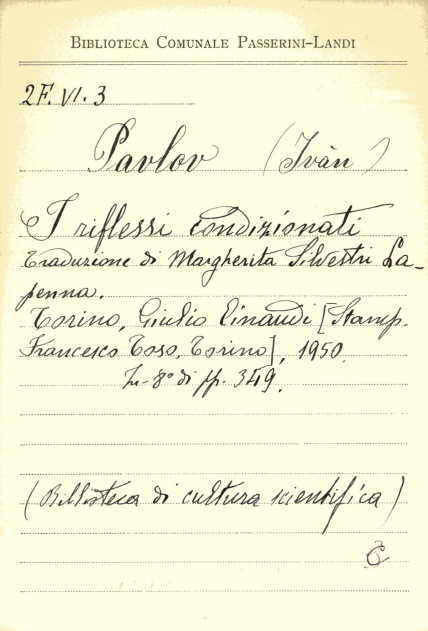 BIBLIOTECA COMUNALE PASSERINI-LANDI
2F. VI. 3
Pavlov (Ivàn)
I riflessi condizionati
Traduzione di Margherita Silvestri La-
penna.
Torino, Giulio Einaudi [Stamp.
Francesco Toso, Torino], 1950.
In-8° di pp. 349.
(Biblioteca di cultura scientifica)